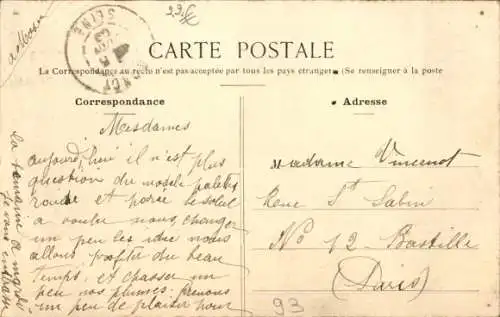 CARTE POSTALE
La Correspondance au recto n'est pas acceptée par tous les pays étrangers (Se renseigner à la poste
Correspondance
Adresse
Mesdames
aujourd'hui il n'est plus
question du modèle
et le soleil
a voulu nous changer
un peu les idées nous
allons profiter du beau
temps, et chasser un
peu nos plumes. Prenons
un peu de plaisir pour
la semaine a mardi
je vous embrasse
Madame Vincenot
Rue St Sabin
No 12 Bastille
(Paris)
93
SEINE